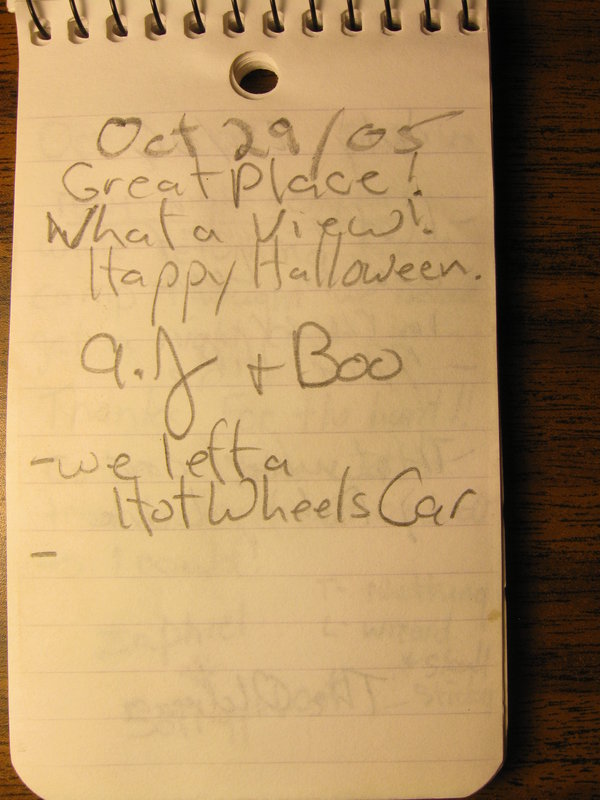 Oct 29/05
Great place!
What a view!.
Happy Halloween.
a.j + Boo
- we left a
Hot Wheels Car
-